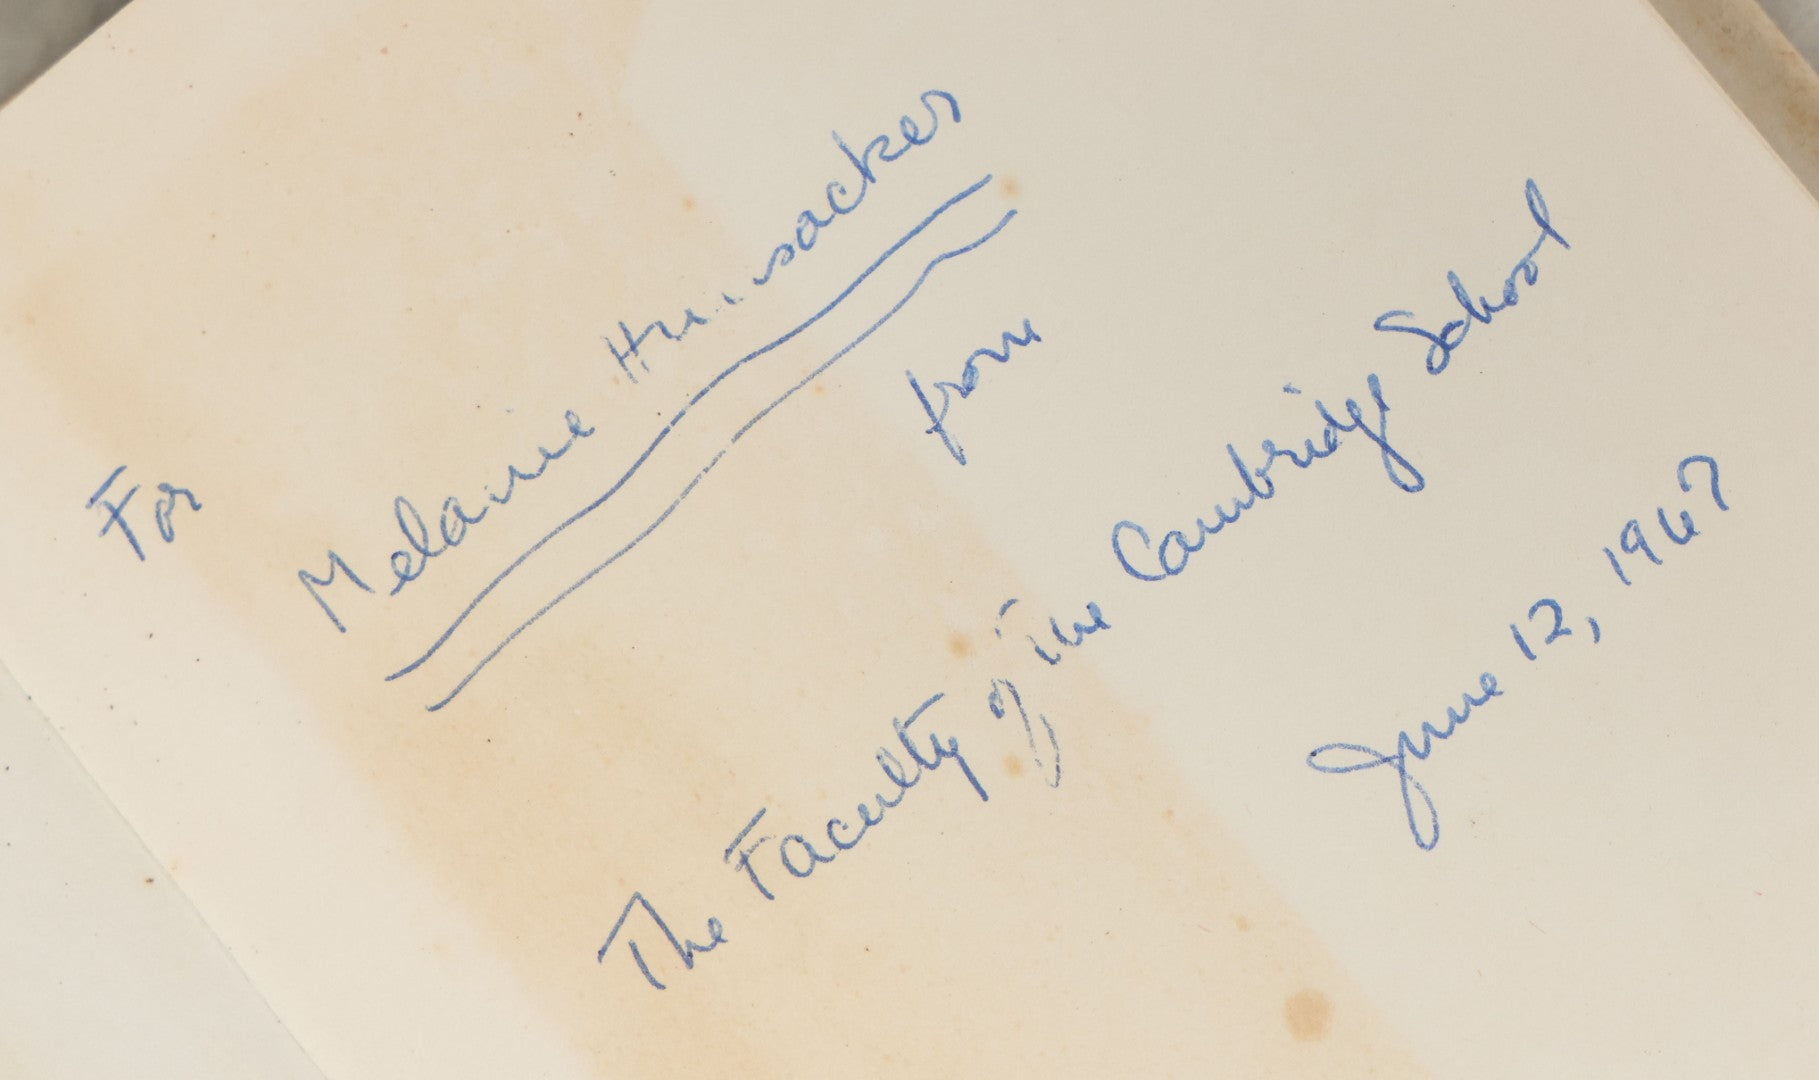 For
Melanie Hunsacker
from
The Faculty of the Cambridge School
June 12, 1967